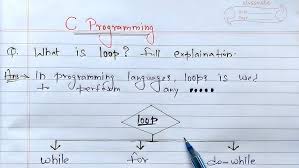 C Programming
classmate
Q. What is loop? full explaination.
Ans→ In programming languages, loops is used
to perform any .....
loop
while for do-while